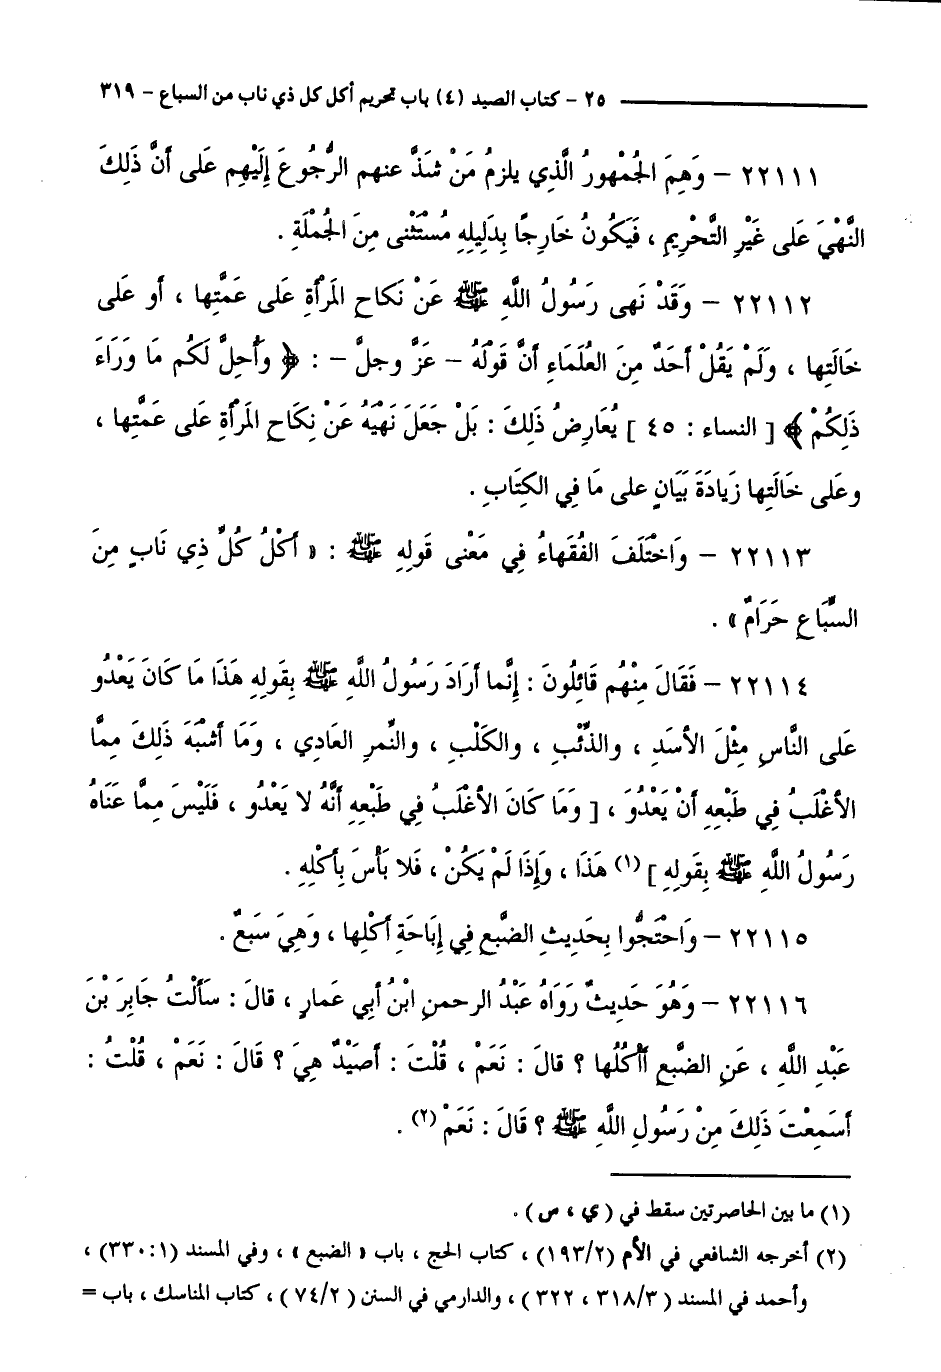 ٢٥ - كتاب الصيد (٤) باب تحريم أكل كل ذي ناب من السباع - ٣١٩
٢٢١١١ - وَهِمَ الجُمْهورُ الَّذِي يلزمُ مَنْ شَذَّ عنهم الرُّجُوعَ إِلَيْهِم عَلى أنَّ ذَلِكَ
النَّهْيَ عَلى غَيْرِ التَّحْرِيمِ ، فَيَكُونُ خَارِجًا بِدَلِيلِهِ مُسْتَثْنى مِنَ الجُمْلَةِ .
٢٢١١٢ - وَقَدْ نَهى رَسُولُ اللَّهِ ﷺ عَنْ نَكاحِ المَرْأةِ عَلى عَمَّتِها ، أو عَلى
خَالَتِها ، وَلَمْ يَقُلْ أحَدٌ مِنَ العُلَمَاءِ أنَّ قَوْلَهُ - عَزَّ وجلَّ - : ﴿ وأُحِلَّ لَكُم مَا وَرَاءَ
ذَلِكُمْ ﴾ [ النساء : ٤٥ ] يُعَارِضُ ذَلِكَ : بَلْ جَعَلَ نَهْيَهُ عَنْ نِكَاحِ المَرْأةِ عَلى عَمَّتِها ،
وعَلى خَالَتِها زِيَادَةَ بَيَانٍ على مَا فِي الكِتَابِ .
٢٢١١٣ - وَاخْتَلَفَ الفُقَهاءُ فِي مَعْنى قَولِهِ ﷺ : « أكْلُ كُلِّ ذِي نَابٍ مِنَ
السِّبَاعِ حَرَامٌ » .
٢٢١١٤ - فَقَالَ مِنْهُم قَائِلُونَ : إِنَّما أرَادَ رَسُولُ اللَّهِ ﷺ بِقَولِهِ هَذَا مَا كَانَ يَعْدُو
عَلى النَّاسِ مِثْلَ الأسَدِ ، والذِّئْبِ ، والكَلْبِ ، والنَّمرِ العَادِي ، وَمَا أشْبَهَ ذَلِكَ مِمَّا
الأغْلَبُ فِي طَبْعِهِ أنْ يَعْدُوَ ، [ وَمَا كَانَ الأغْلَبُ فِي طَبْعِهِ أنَّهُ لا يَعْدُو ، فَلَيْسَ مِمَّا عَنَاهُ
رَسُولُ اللَّهِ ﷺ بِقَولِهِ ] (١) هَذَا ، وَإِذَا لَمْ يَكُنْ ، فَلا بَأسَ بِأكْلِهِ .
٢٢١١٥ - وَاحْتَجُّوا بِحَدِيثِ الضَّبُعِ فِي إِبَاحَةِ أكْلِها ، وَهِيَ سَبُعٌ .
٢٢١١٦ - وَهُوَ حَدِيثٌ رَوَاهُ عَبْدُ الرحمنِ ابْنُ أبِي عَمارٍ ، قالَ : سَألْتُ جَابِرَ بْنَ
عَبْدِ اللَّهِ ، عَنِ الضَّبُعِ أأْكُلُها ؟ قالَ : نَعَمْ ، قُلْتَ : أصَيْدٌ هِيَ ؟ قَالَ : نَعَمْ ، قُلْتُ :
أسَمِعْتَ ذَلِكَ مِنْ رَسُولِ اللَّهِ ﷺ ؟ قَالَ : نَعَمْ (٢) .
(١) ما بين الحاصرتين سقط في (ي ، ص) .
(٢) أخرجه الشافعي في الأم (١٩٣/٢) ، كتاب الحج ، باب « الضبع » ، وفي المسند (١: ٣٣٠) ،
وأحمد في المسند (٣١٨/٣ ، ٣٢٢) ، والدارمي في السنن (٧٤/٢) ، كتاب المناسك ، باب =